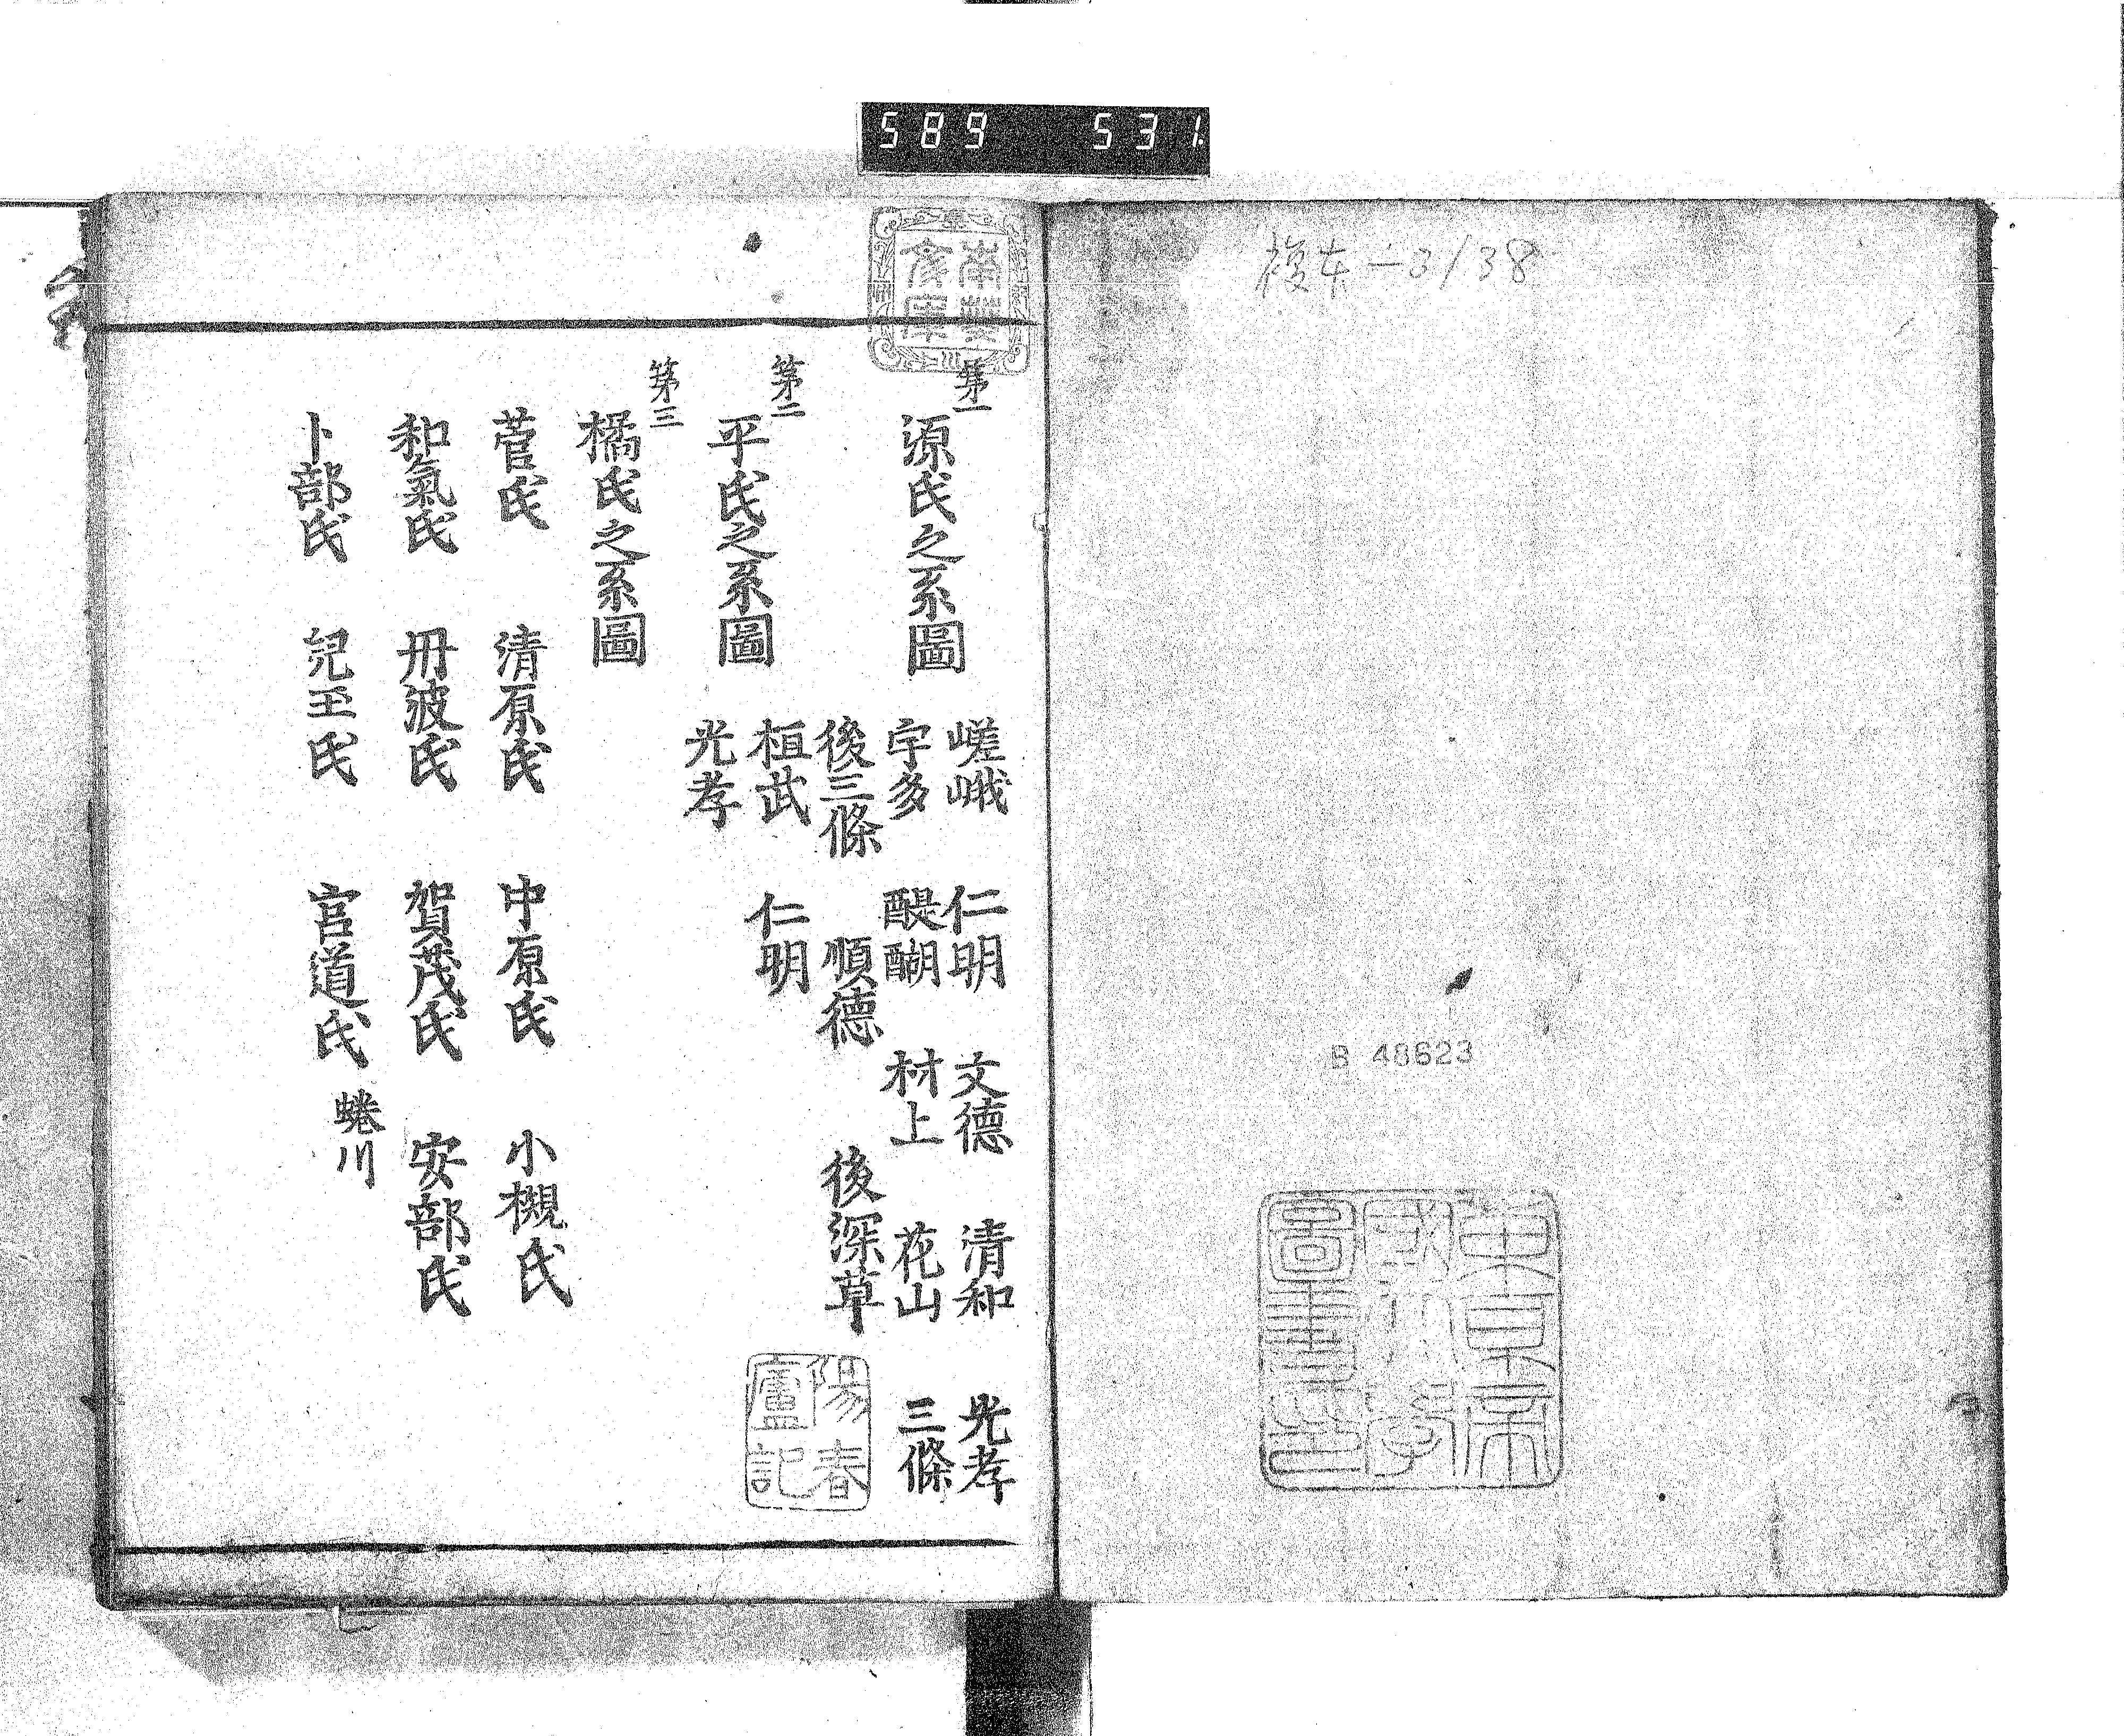 589 531
複本-3/38
B 48623
東京帝
國大學
圖書印
南葵
文庫
第一
源氏之系圖
嵯峨 仁明 文德 清和 光孝
宇多 醍醐 村上 花山 三條
後三條 順德 後深草
第二
平氏之系圖
桓武 仁明
光孝
陽春
廬記
第三
橘氏之系圖
菅氏 清原氏 中原氏 小槻氏
和氣氏 丹波氏 賀茂氏 安部氏
卜部氏 児玉氏 宮道氏 蜷川